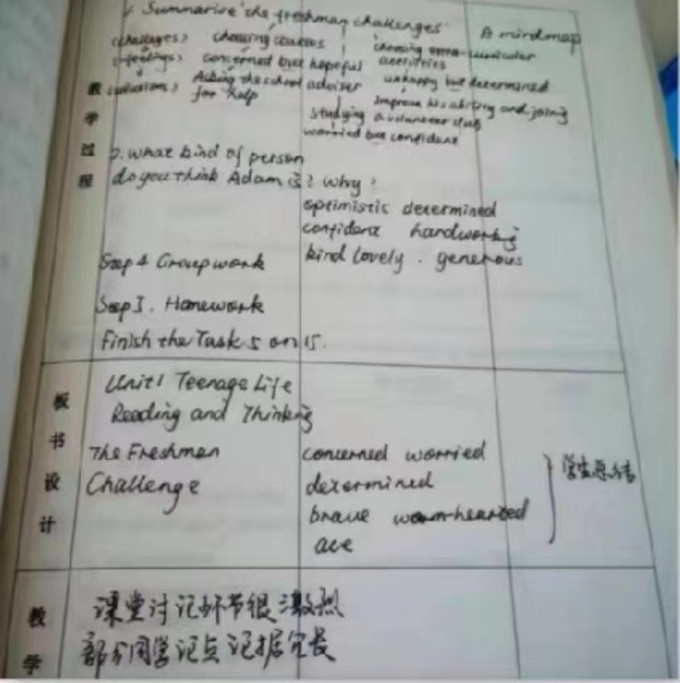 1. Summarise the freshman challenges
A mindmap
(challages) choosing courses
choosing extra-curricular
activities
(feelings) concerned but hopeful
unhappy but determined
(solutions) Asking the school adviser
for help
improve his ability and joing
a volunteer club
studying
worried but confident
教学过程
2. what kind of person
do you think Adam is? Why?
optimistic determined
confident hardworking
kind lovely . generous
Step 4 Groupwork
Step 5. Homework
Finish the Task 5 on 15.
板书设计
Unit 1 Teenage Life
Reading and Thinking
The Freshman
Challenge
concerned worried
determined
brave warm-hearted
ace
学生总结
教学
课堂讨记环节很激烈
部分同学记点记据冗长